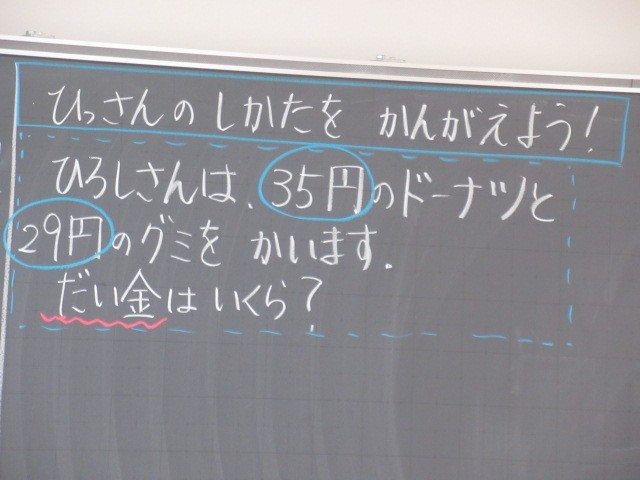 ひっさんのしかたを かんがえよう!
ひろしさんは、35円のドーナツと
29円のグミを かいます.
だい金はいくら?